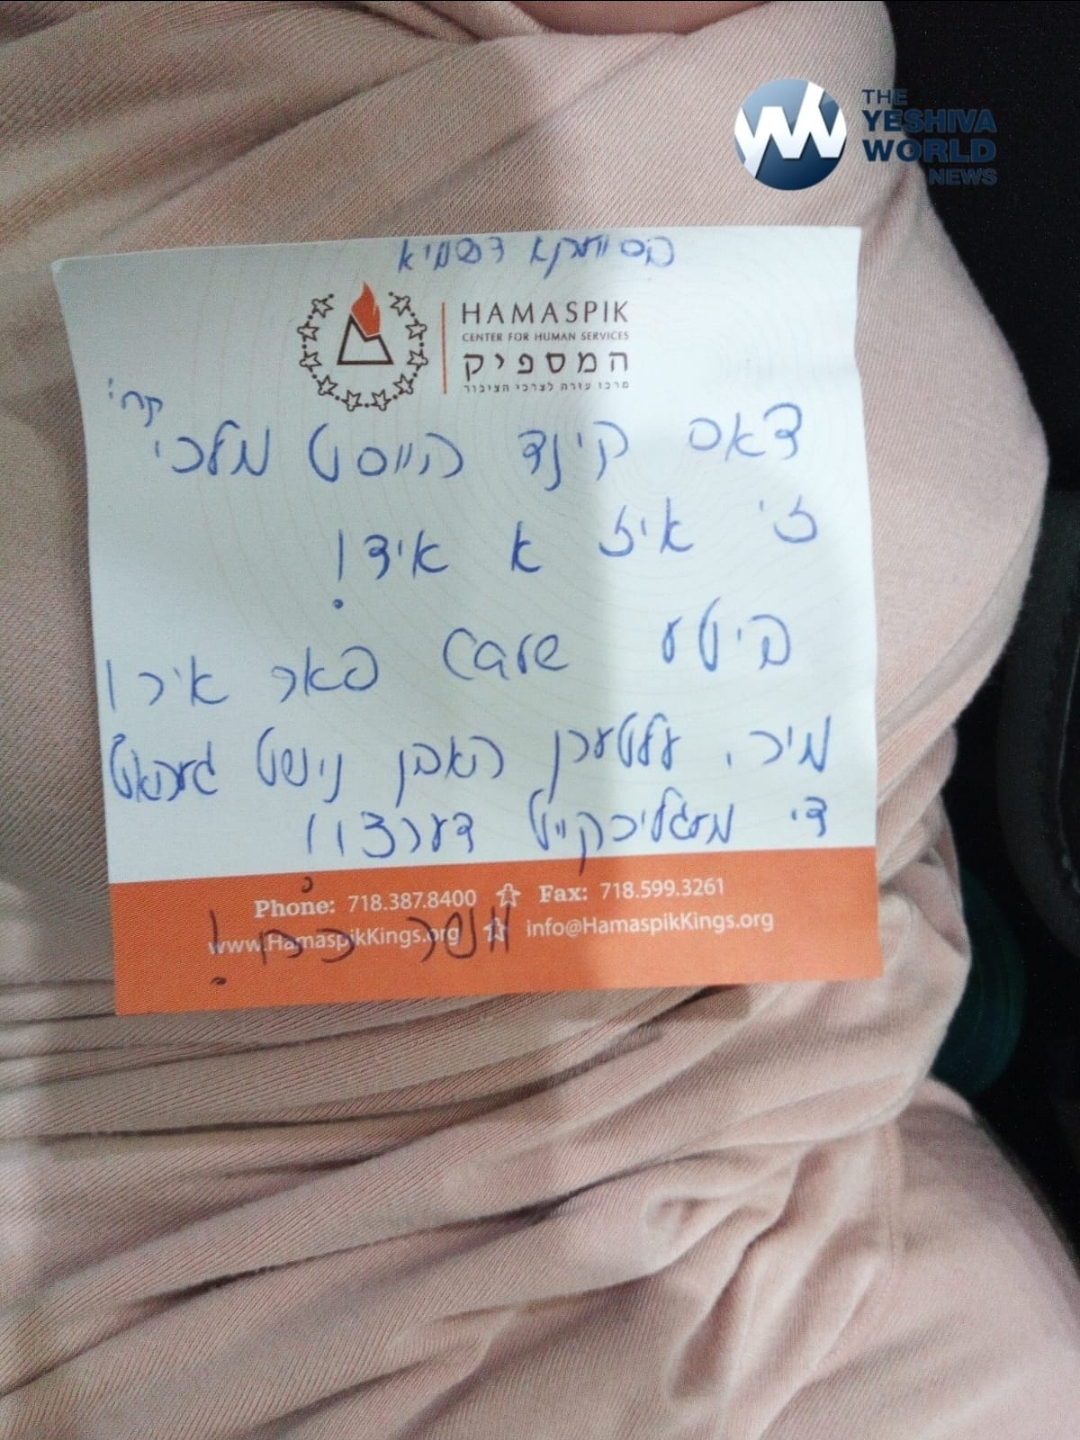 THE
YESHIVA
WORLD
NEWS
בסייעתא דשמיא
HAMASPIK
CENTER FOR HUMAN SERVICES
המספיק
מרכז עזרה לצרכי הציבור
דאס קינד הייסט מלכי
זי איז א איד!
ביטע care פאר איר!
מיר, עלטערן האבן נישט געהאט
די מעגליכקייט דערצו!
Phone: 718.387.8400 Fax: 718.599.3261
www.HamaspikKings.org info@HamaspikKings.org